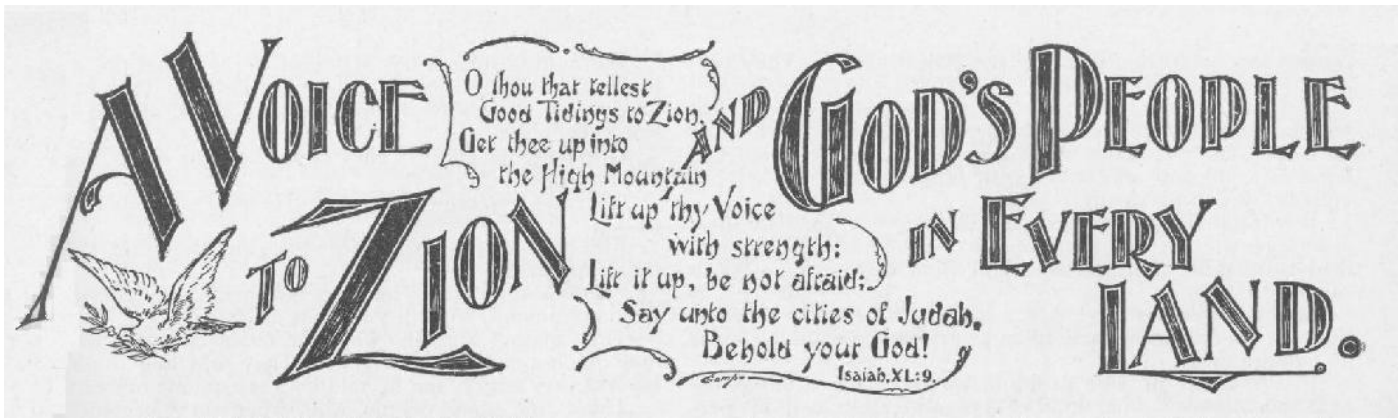 A VOICE
TO ZION
O thou that tellest
Good Tidings to Zion,
Get thee up into
the High Mountain
Lift up thy Voice
with strength:
Lift it up, be not afraid;
Say unto the cities of Judah,
Behold your God!
Isaiah, XL:9.
AND GOD'S PEOPLE
IN EVERY
LAND.